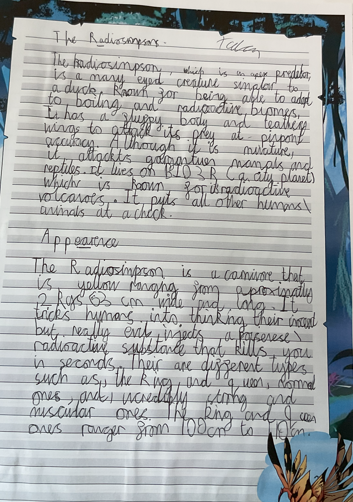 The Radiosimpson.
The Radiosimpson, which is an apex predator,
is a many eyed creature similar to
a duck. Known for being able to adapt
to boiling and radioactive biomes,
It has a sluppy body and leathery
wings to attack its prey at pinpoint
accuracy. Although it is miniature,
it attackts gargantuan mamals and
reptiles. It lives on (a city planet)
which is known for radioactive
volcanoes. It puts all other humans\
animals at a check.
Appearience
The Radiosimpson is a carnivore that
is yellow ranging from aproximatly
2 Kgs 63 cm wide and long. It
tricks humans into thinking their inocent
but really evil injects a poisenese\
radioactive substance that kills you
in seconds. Their are different types
such as, the King and queen, normal
ones, and incredibly strong and
muscular ones. The King and Queen
ones ranger from 100cm to 110cm.